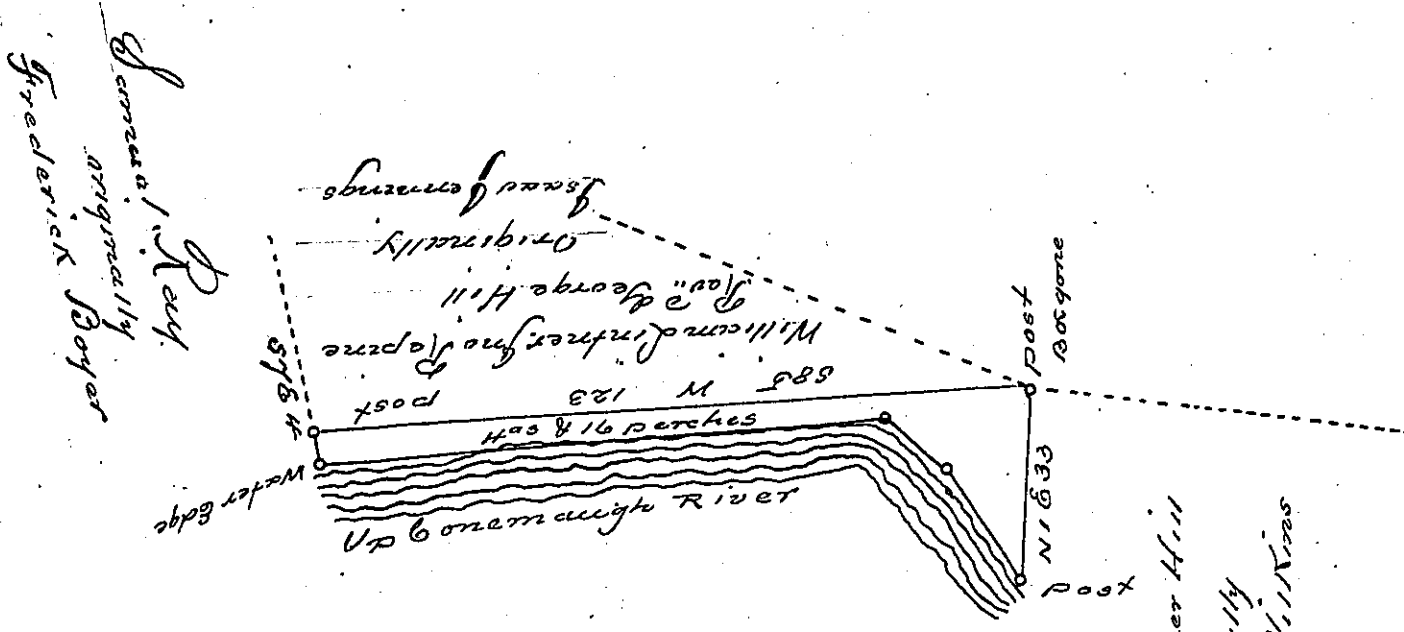 Samuel Ray
originally
Frederick Boyer
Isaac Jennings
Originally
Rev.d George Hill
William Lintner, Jno Repine
S85 W 123 post
4as & 16 perches
S7E 4
Water Edge
Up Conemaugh River
post
Bogone
N1E33
post
er Hill
lly